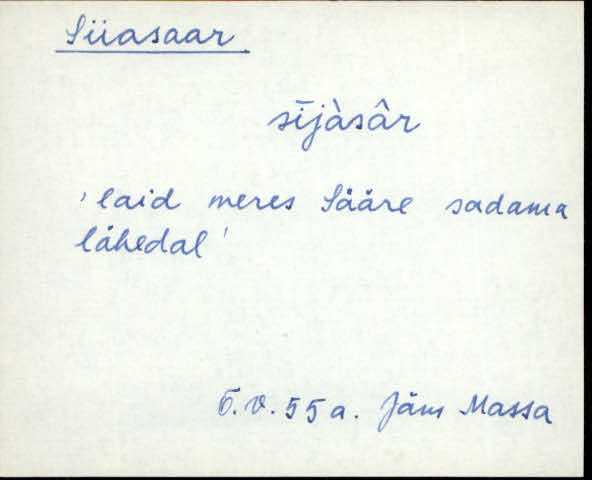 Siiasaar
sījàsâr
'laid meres Sääre sadama
lähedal'
5.V.55 a. Jäm Massa